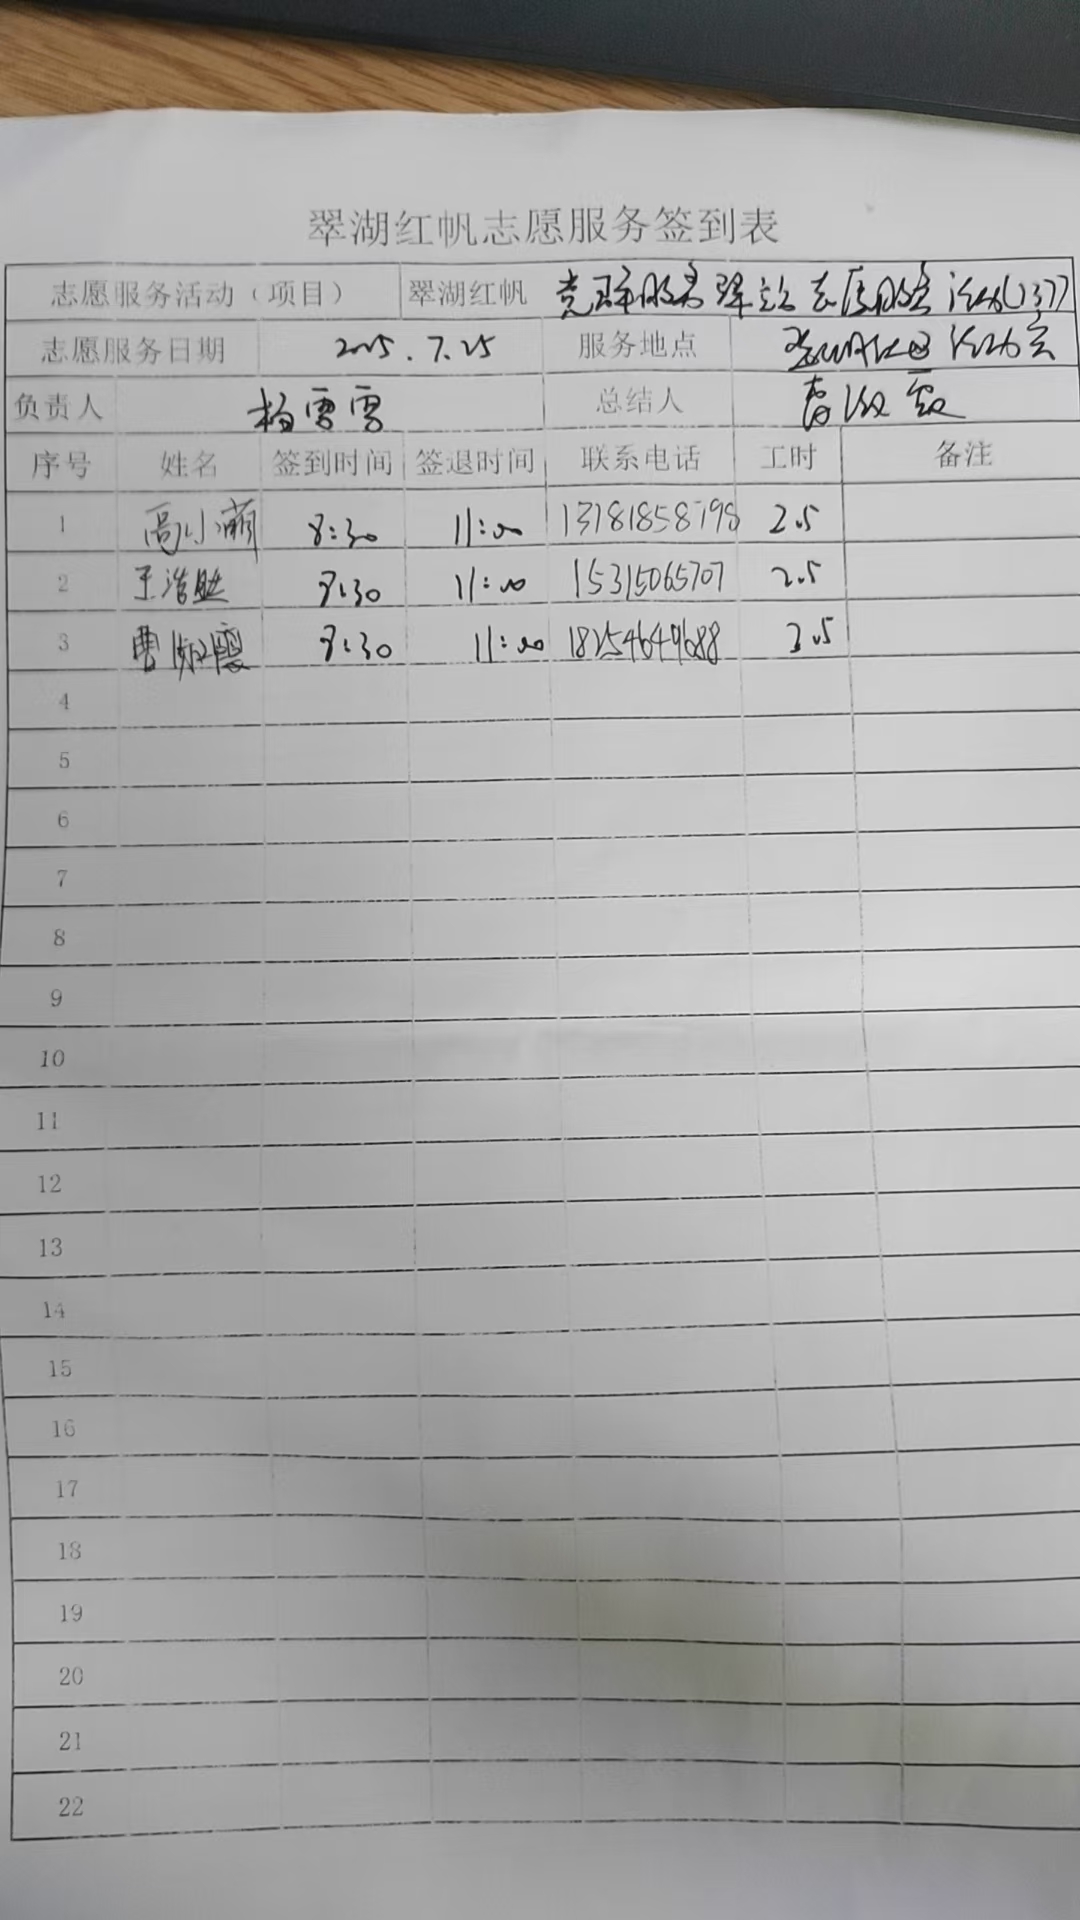 翠湖红帆志愿服务签到表
志愿服务活动（项目） 翠湖红帆 党群服务驿站志愿服务活动(137)
志愿服务日期 2025.7.25 服务地点 翠湖社区活动室
负责人 杨雪雪 总结人 曹淑霞
序号 姓名 签到时间 签退时间 联系电话 工时 备注
1 高小萌 8:30 11:00 13781858798 2.5
2 王浩然 8:30 11:00 15315065707 2.5
3 曹淑霞 8:30 11:00 18254649688 2.5
4
5
6
7
8
9
10
11
12
13
14
15
16
17
18
19
20
21
22